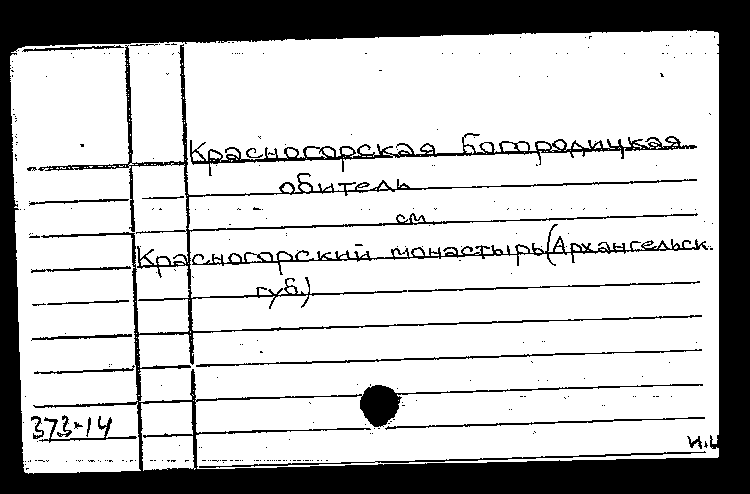 Красногорская Богородицкая
обитель
см
Красногорский монастырь (Архангельск.
губ.)
373-14